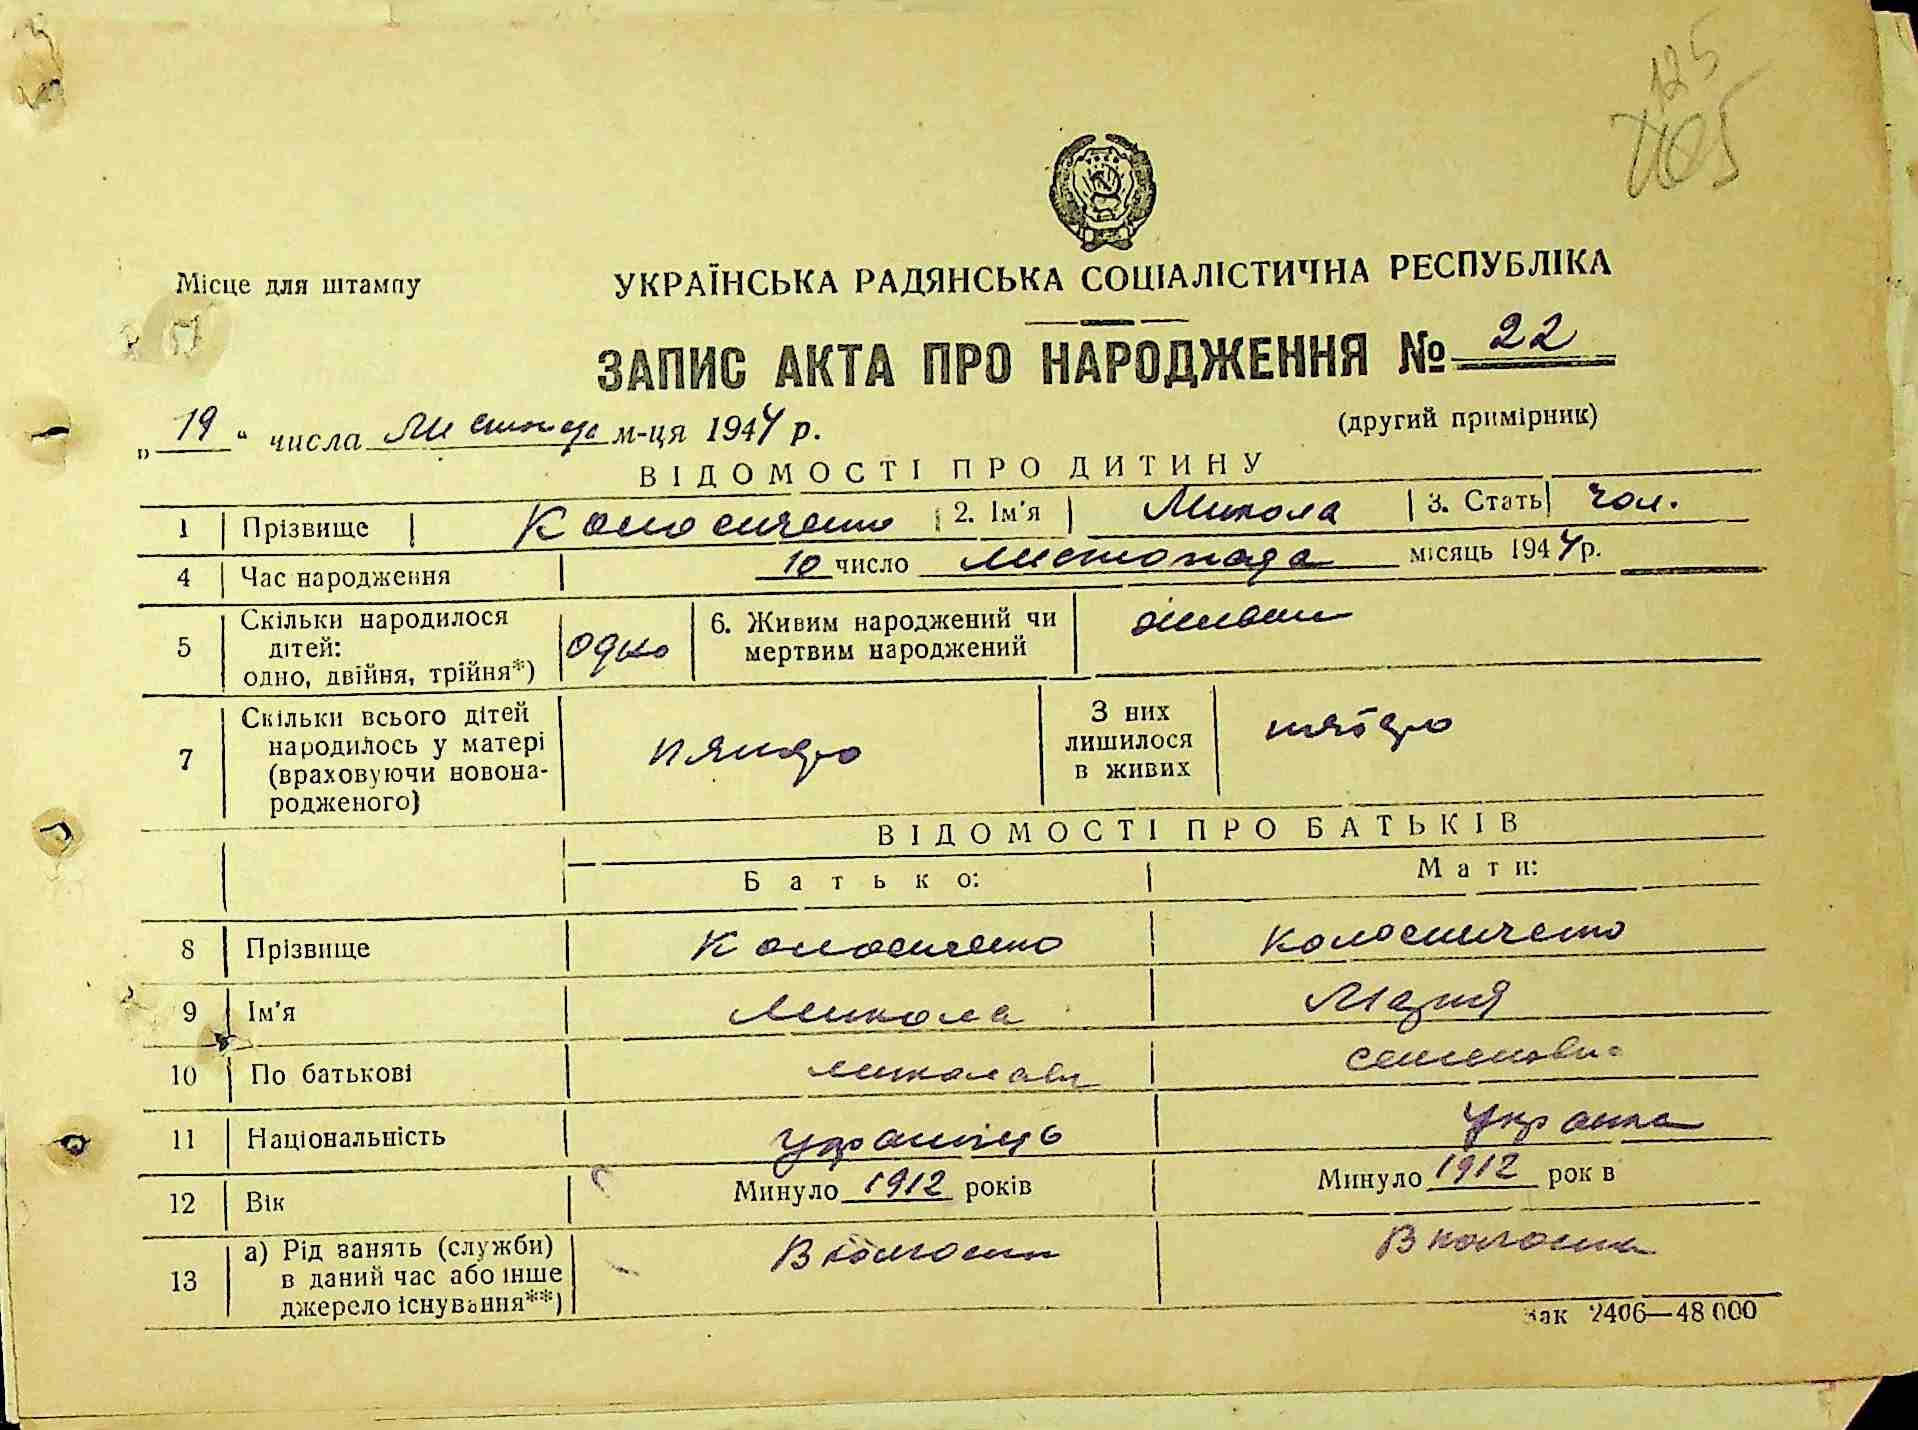 125
Місце для штампу
УКРАЇНСЬКА РАДЯНСЬКА СОЦІАЛІСТИЧНА РЕСПУБЛІКА
ЗАПИС АКТА ПРО НАРОДЖЕННЯ № 22
„19“ числа Листопада м-ця 1944 р.
(другий примірник)
ВІДОМОСТІ ПРО ДИТИНУ
1 Прізвище 2. Ім'я Микола 3. Стать чол.
4 Час народження 10 число листопада місяць 1944 р.
5 Скільки народилося дітей: одно, двійня, трійня*) одно 6. Живим народжений чи мертвим народжений живим
7 Скільки всього дітей народилось у матері (враховуючи новонародженого) пятеро З них лишилося в живих пятеро
ВІДОМОСТІ ПРО БАТЬКІВ
Батько: Мати:
8 Прізвище
9 Ім'я Микола Мария
10 По батькові
11 Національність українець українка
12 Вік Минуло 1912 років Минуло 1912 рок в
13 а) Рід занять (служби) в даний час або інше джерело існування**) В колгоспі В колгоспі
Зак 2406—48 000